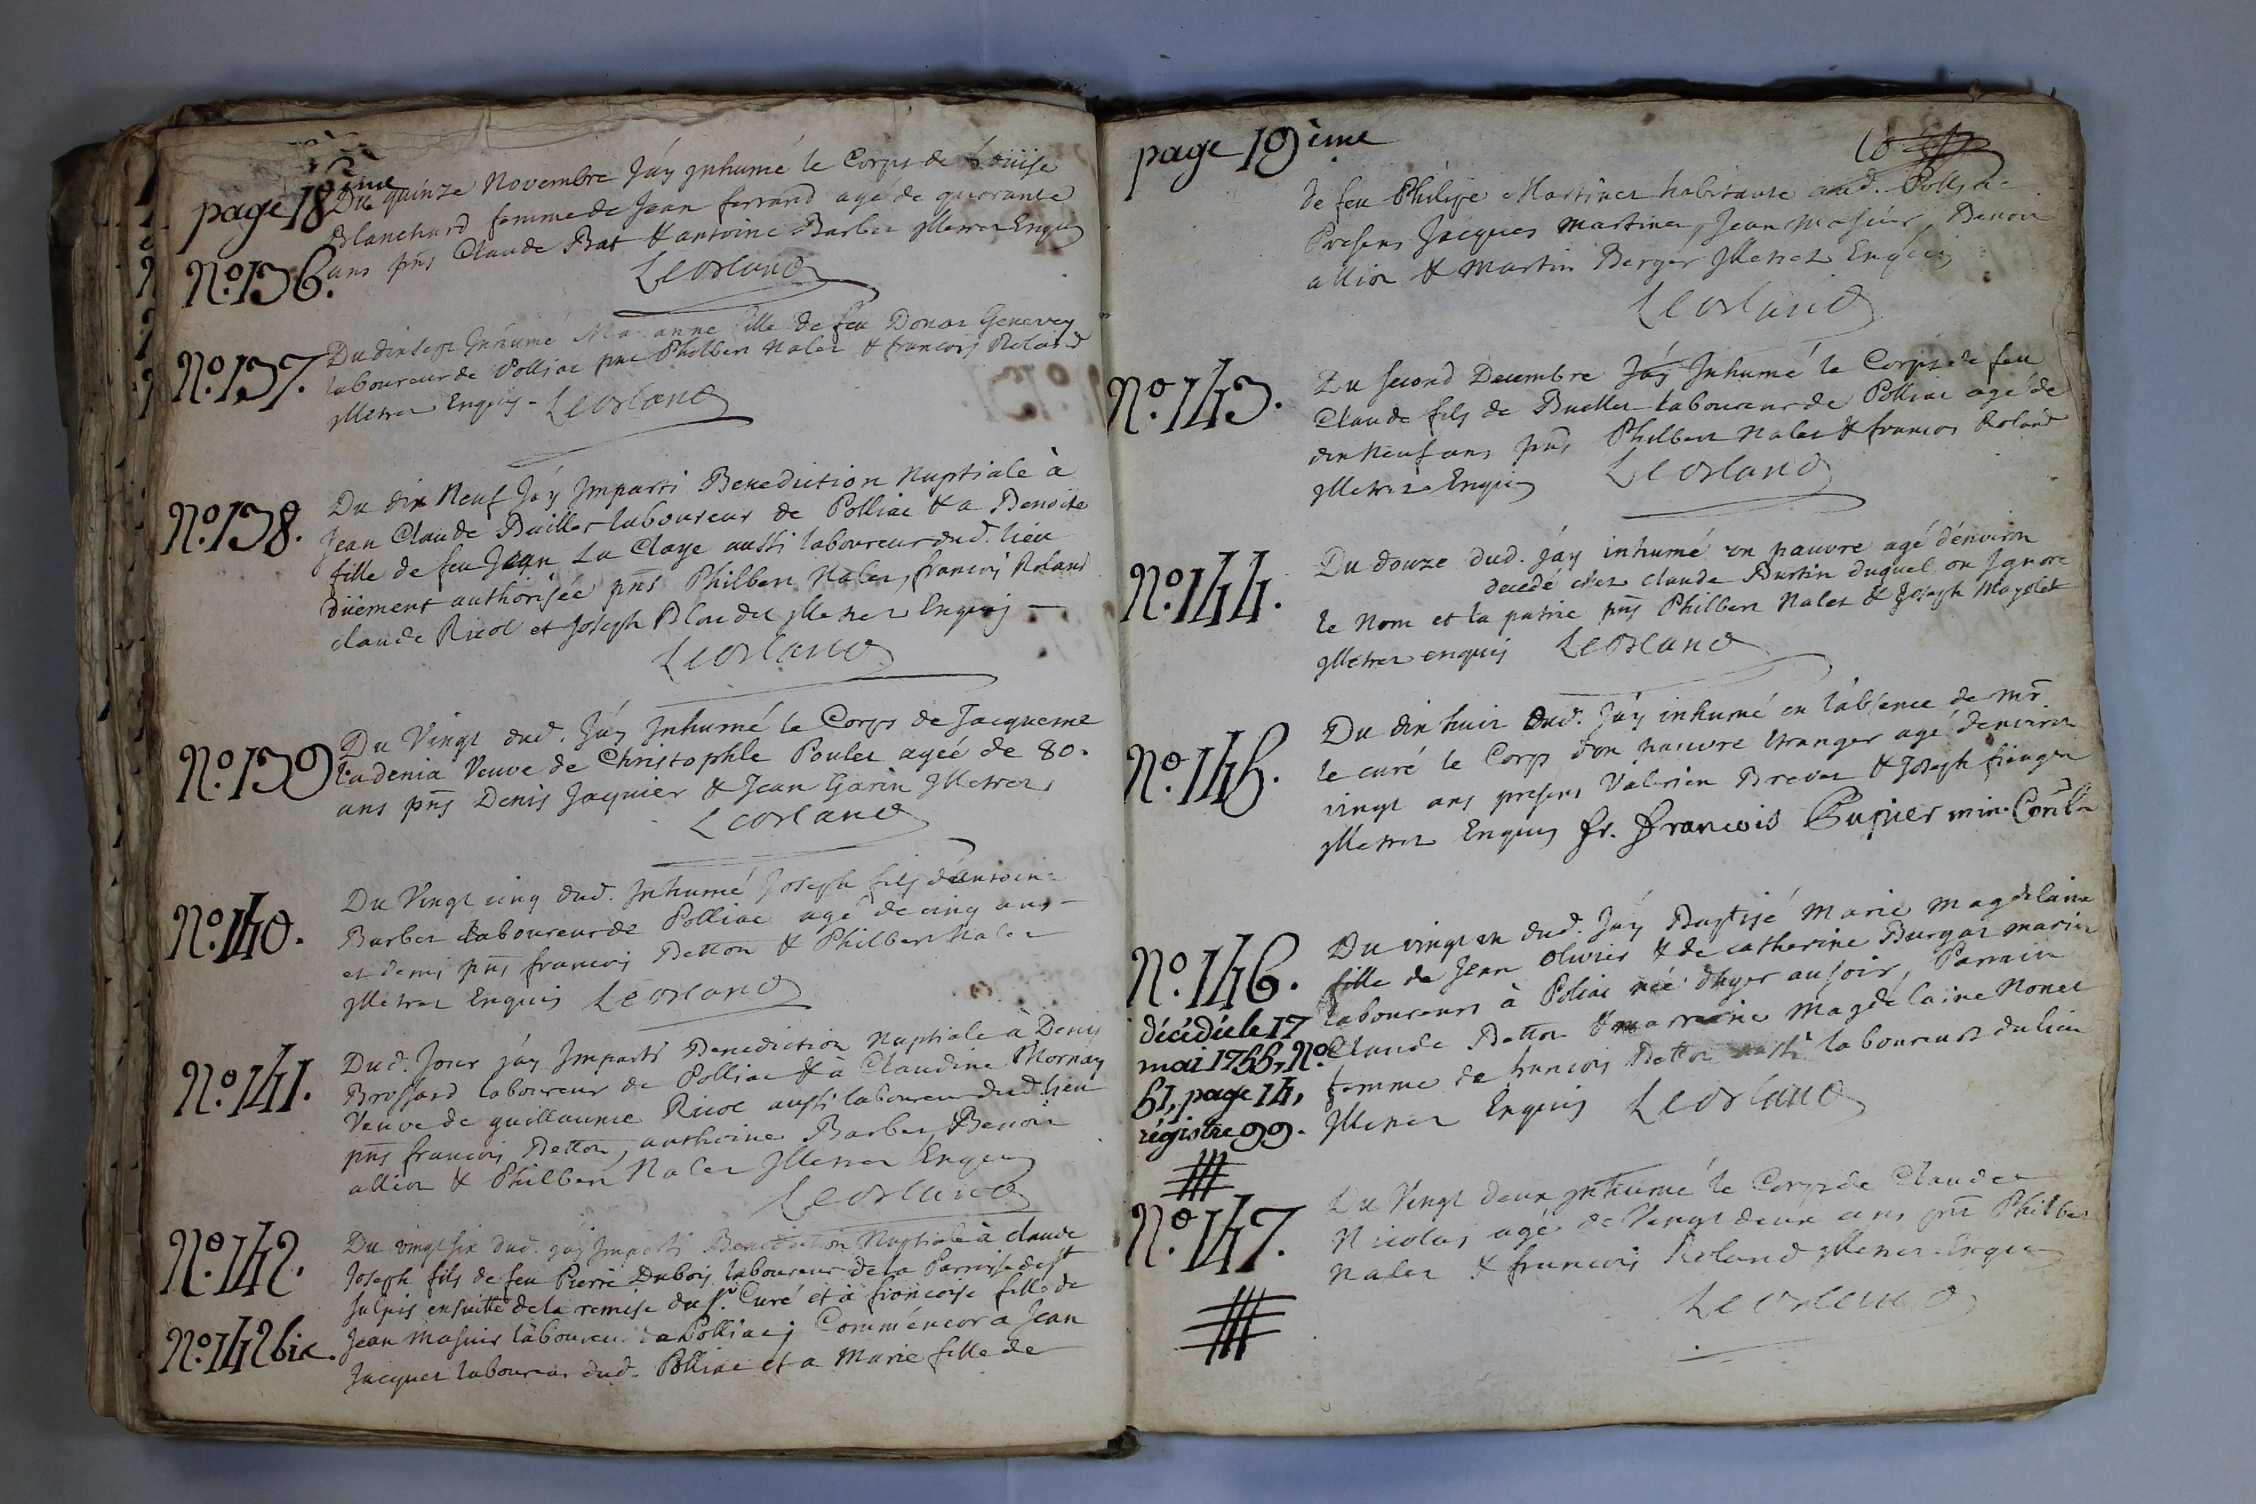 page 18 ème
Du quinze Novembre Jáy Inhumé le Corps de Loüise
Blanchard femme de Jean ferrand agé de quarante
No. 136. ans pn̄s Claude Bat & antoine Barbet Illetrez Enquis
Leorland
No. 137. Du dixsept Inhumé Marianne fille de feu Donat Genevey
laboureur de Polliac pn̄s Philbert Nalet & francois Roland
Illetrez Enquis - Leorland
No. 138. Du dix Neuf Jáy Imparti Benediction Nuptiale à
Jean Claude Builler laboureur de Polliac & a Benoite
fille de feu Jean La Claye aussi laboureur dud. lieu
düement authorisée pn̄s Philbert Nalet, francois Roland
claude Ricol et Joseph Blondet Illetrez Enquis —
Leorland
No. 139. Du Vingt dud. Jáy Inhumé le Corps de Jacqueme
Ladenia Veuve de Christophle Poulet ageé de 80.
ans pn̄s Denis Jaquier & Jean Garin Illetrez
Leorland
No. 140. Du Vingt cinq dud. Inhumé Joseph fils d'antoine
Barbet Laboureur de Polliac agé de cinq ans
et demi pn̄s francois Detton & Philbert Nalet
Illetrez Enquis Leorland
No. 141. Dud. Jour jáy Imparti Benediction Nuptiale à Denis
Brossard laboureur de Polliac & à Claudine Mornay
Veuve de guillaume Ricol aussi laboureur dud. lieu
pn̄s francois Detton, anthoine Barbet, Benoit
allior & Philbert Nalet Illetrez Enquis
Leorland
No. 142. Du vingt six dud. jáy Imparti Benediction Nuptiale à claude
Joseph fils de feu Pierre Dubois laboureur de la Parroisse de st
Sulpis ensuitte de la remise du sr. Curé et à francoise fille de
No. 142 bis. Jean Masuir laboureur a Polliac; Comme encor a Jean
Jacquet laboureur dud. Polliac et a Marie fille de
page 19 ème
de feu Philipe Martinet habitante aud. Polliac
Presens Jacques Martinet, Jean Masuir, Benoit
allior & Martin Berger Illetrez Enquis
Leorland
No. 143. Du second Decembre Jáy Inhumé le Corps de feu
Claude fils de Buellet laboureur de Polliac agé de
dix Neuf ans pn̄s Philbert Nalet & francois Roland
Illetrez Enquis Leorland
No. 144. Du douze dud. jáy inhumé un pauvre agé d'environ
decedé chez claude Burtin duquel on Ignore
le Nom et la patrie pn̄s Philbert Nalet & Joseph Mayolet
Illetrez enquis Leorland
No. 145. Du dix huit dud. jáy inhumé en l'absence de Mr.
le curé le Corp d'un pauvre etranger agé d'environ
vingt ans presens Valerien Brevet & Joseph
Illetrez Enquis fr. francois min.
No. 146. Du vingt un dud. Jáy Baptisé Marie Magdelaine
fille de Jean olivier & de catherine Burgat mariez
laboureurs à Poliac née d'hyer au soir, Parrain
Claude Detton & marraine Magdelaine Nonet
femme de francois Detton aussi laboureurs du lieu
Illetrez Enquis Leorland
décédée le 17
mai 1755, No.
51, page 14,
régistre 99.
No. 147. Du Vingt deux Inhumé le Corps de Claude
Nicolas agé de Vingt deux ans pn̄s Philbert
Nalet & francois Roland Illetrez Enquis
Leorland